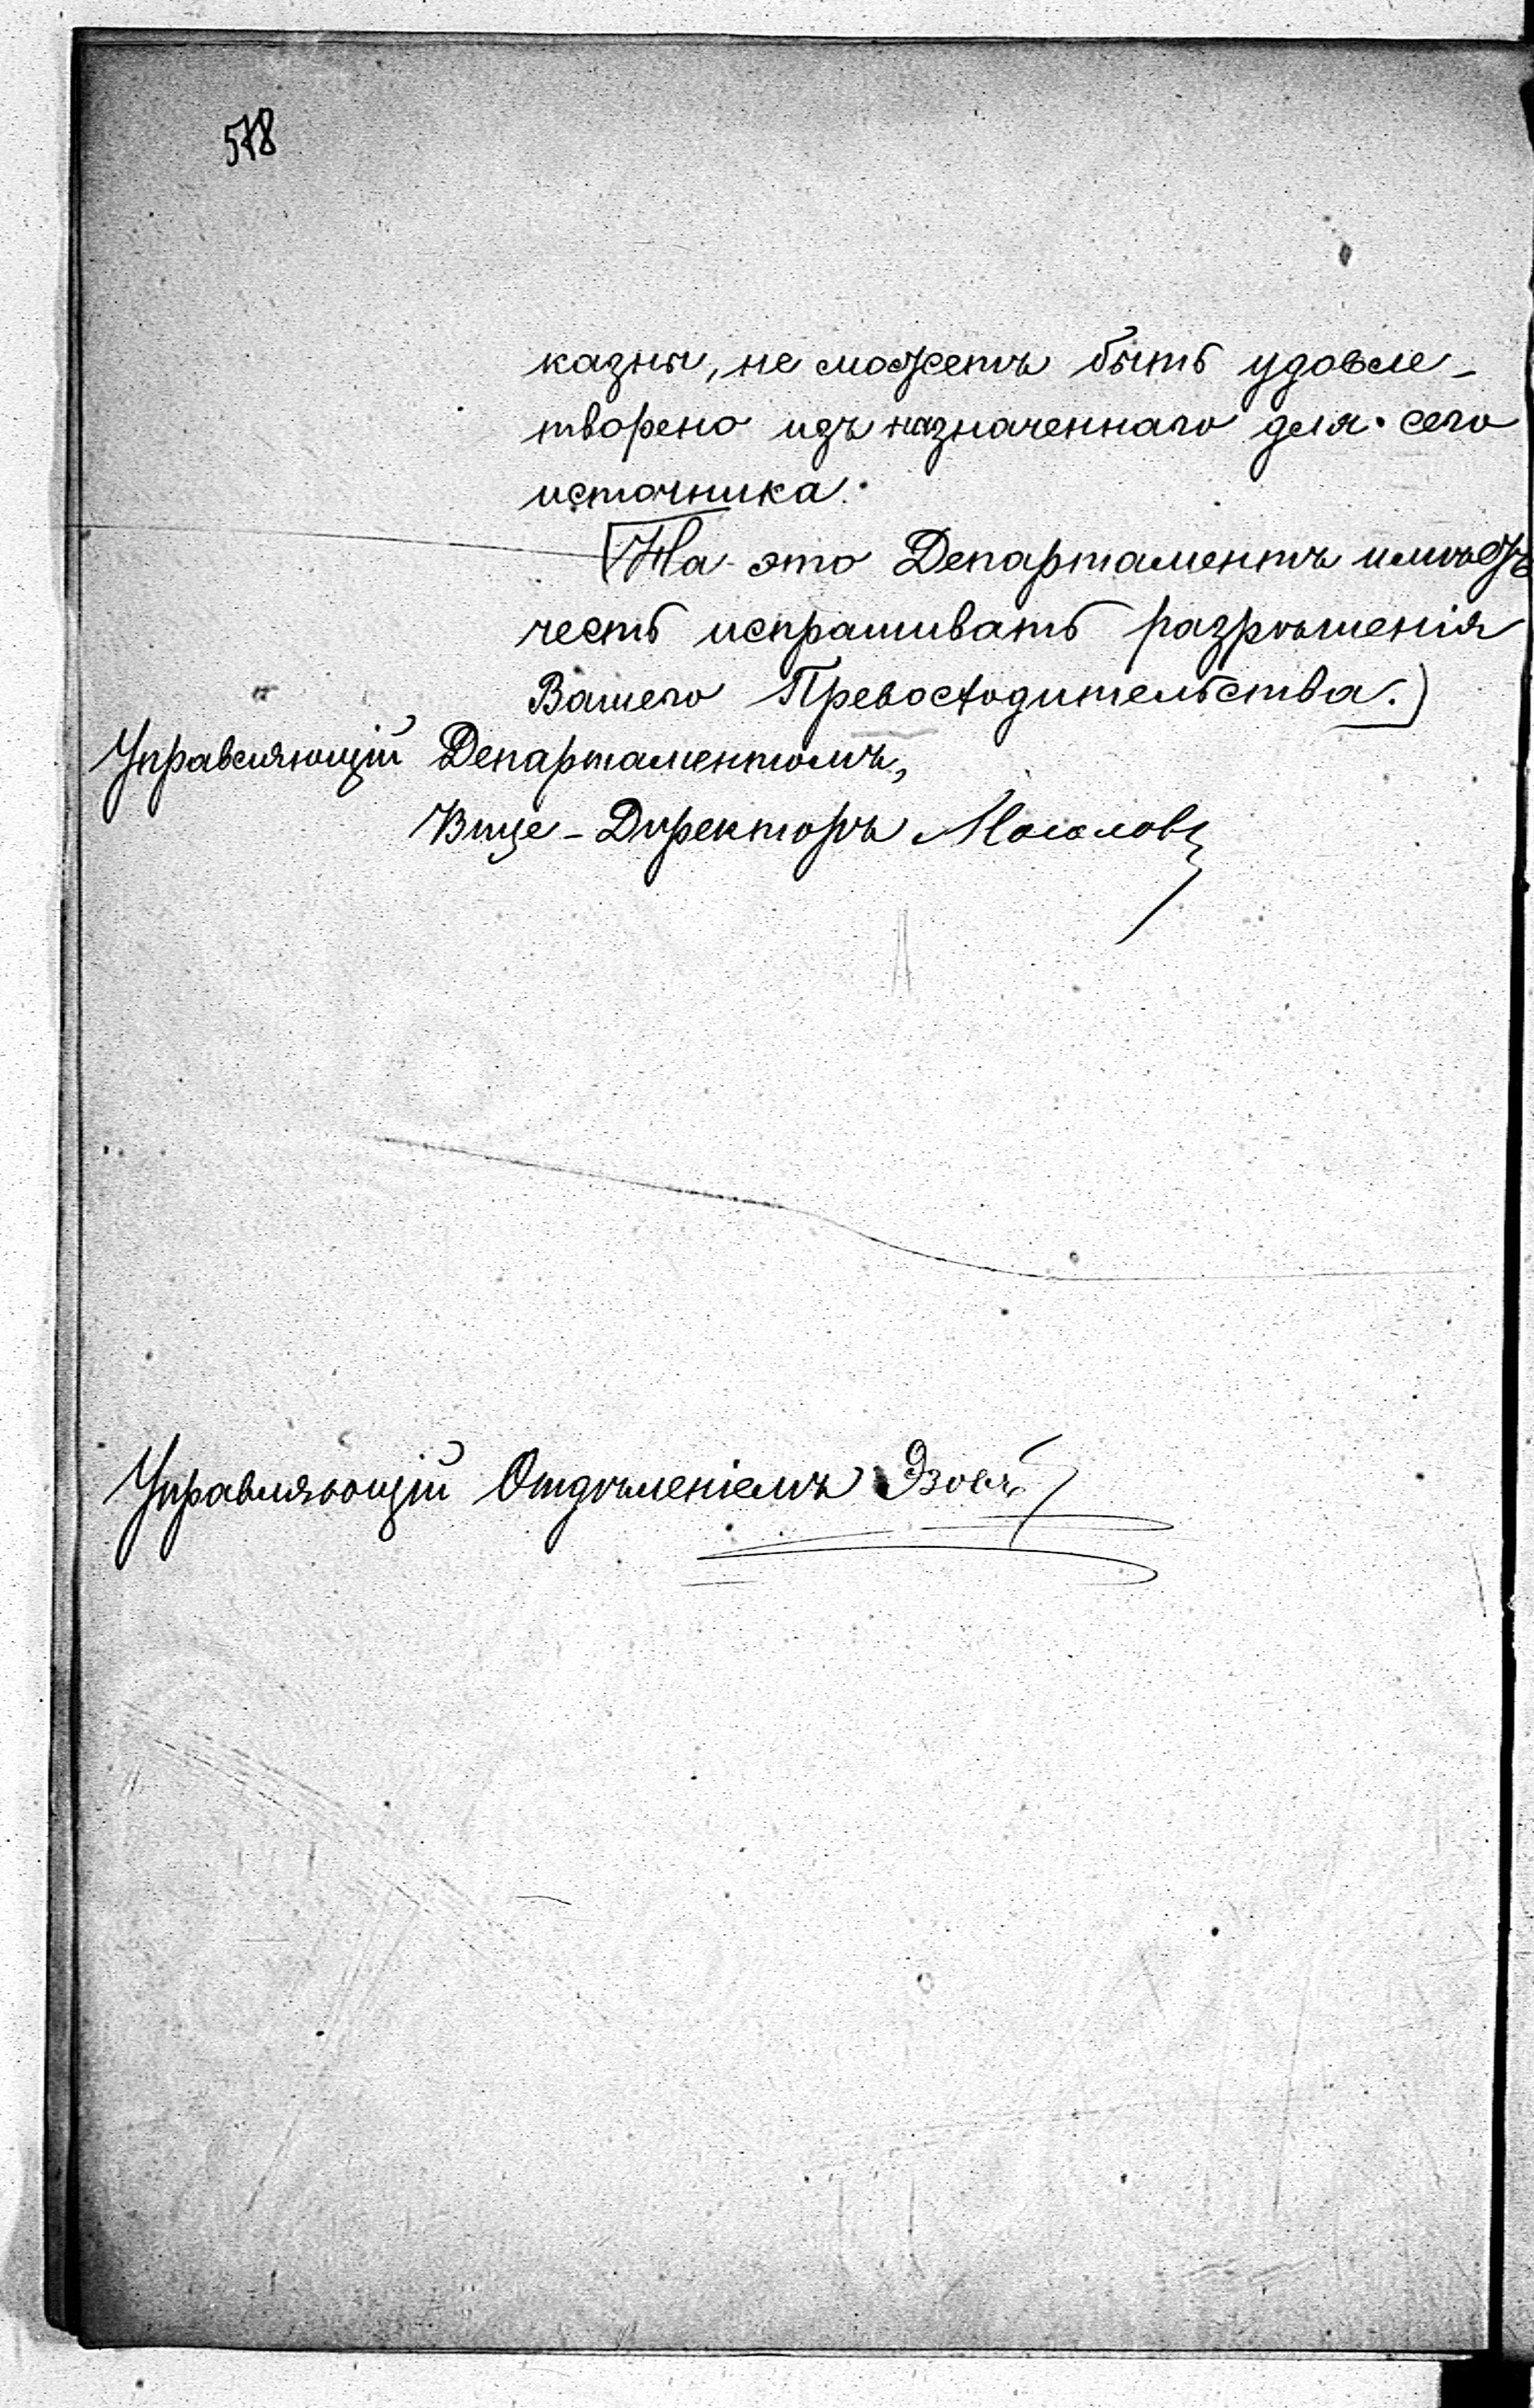 578
казны, не можетъ быть удовле-
творено изъ назначеннаго для сего
источника.
На это Департаментъ имѣетъ
честь испрашивать разрѣшенія
Вашего Превосходительства.)
Управляющій Департаментомъ,
Вице-Директоръ Мосоловъ
Управляющій Отдѣленіемъ